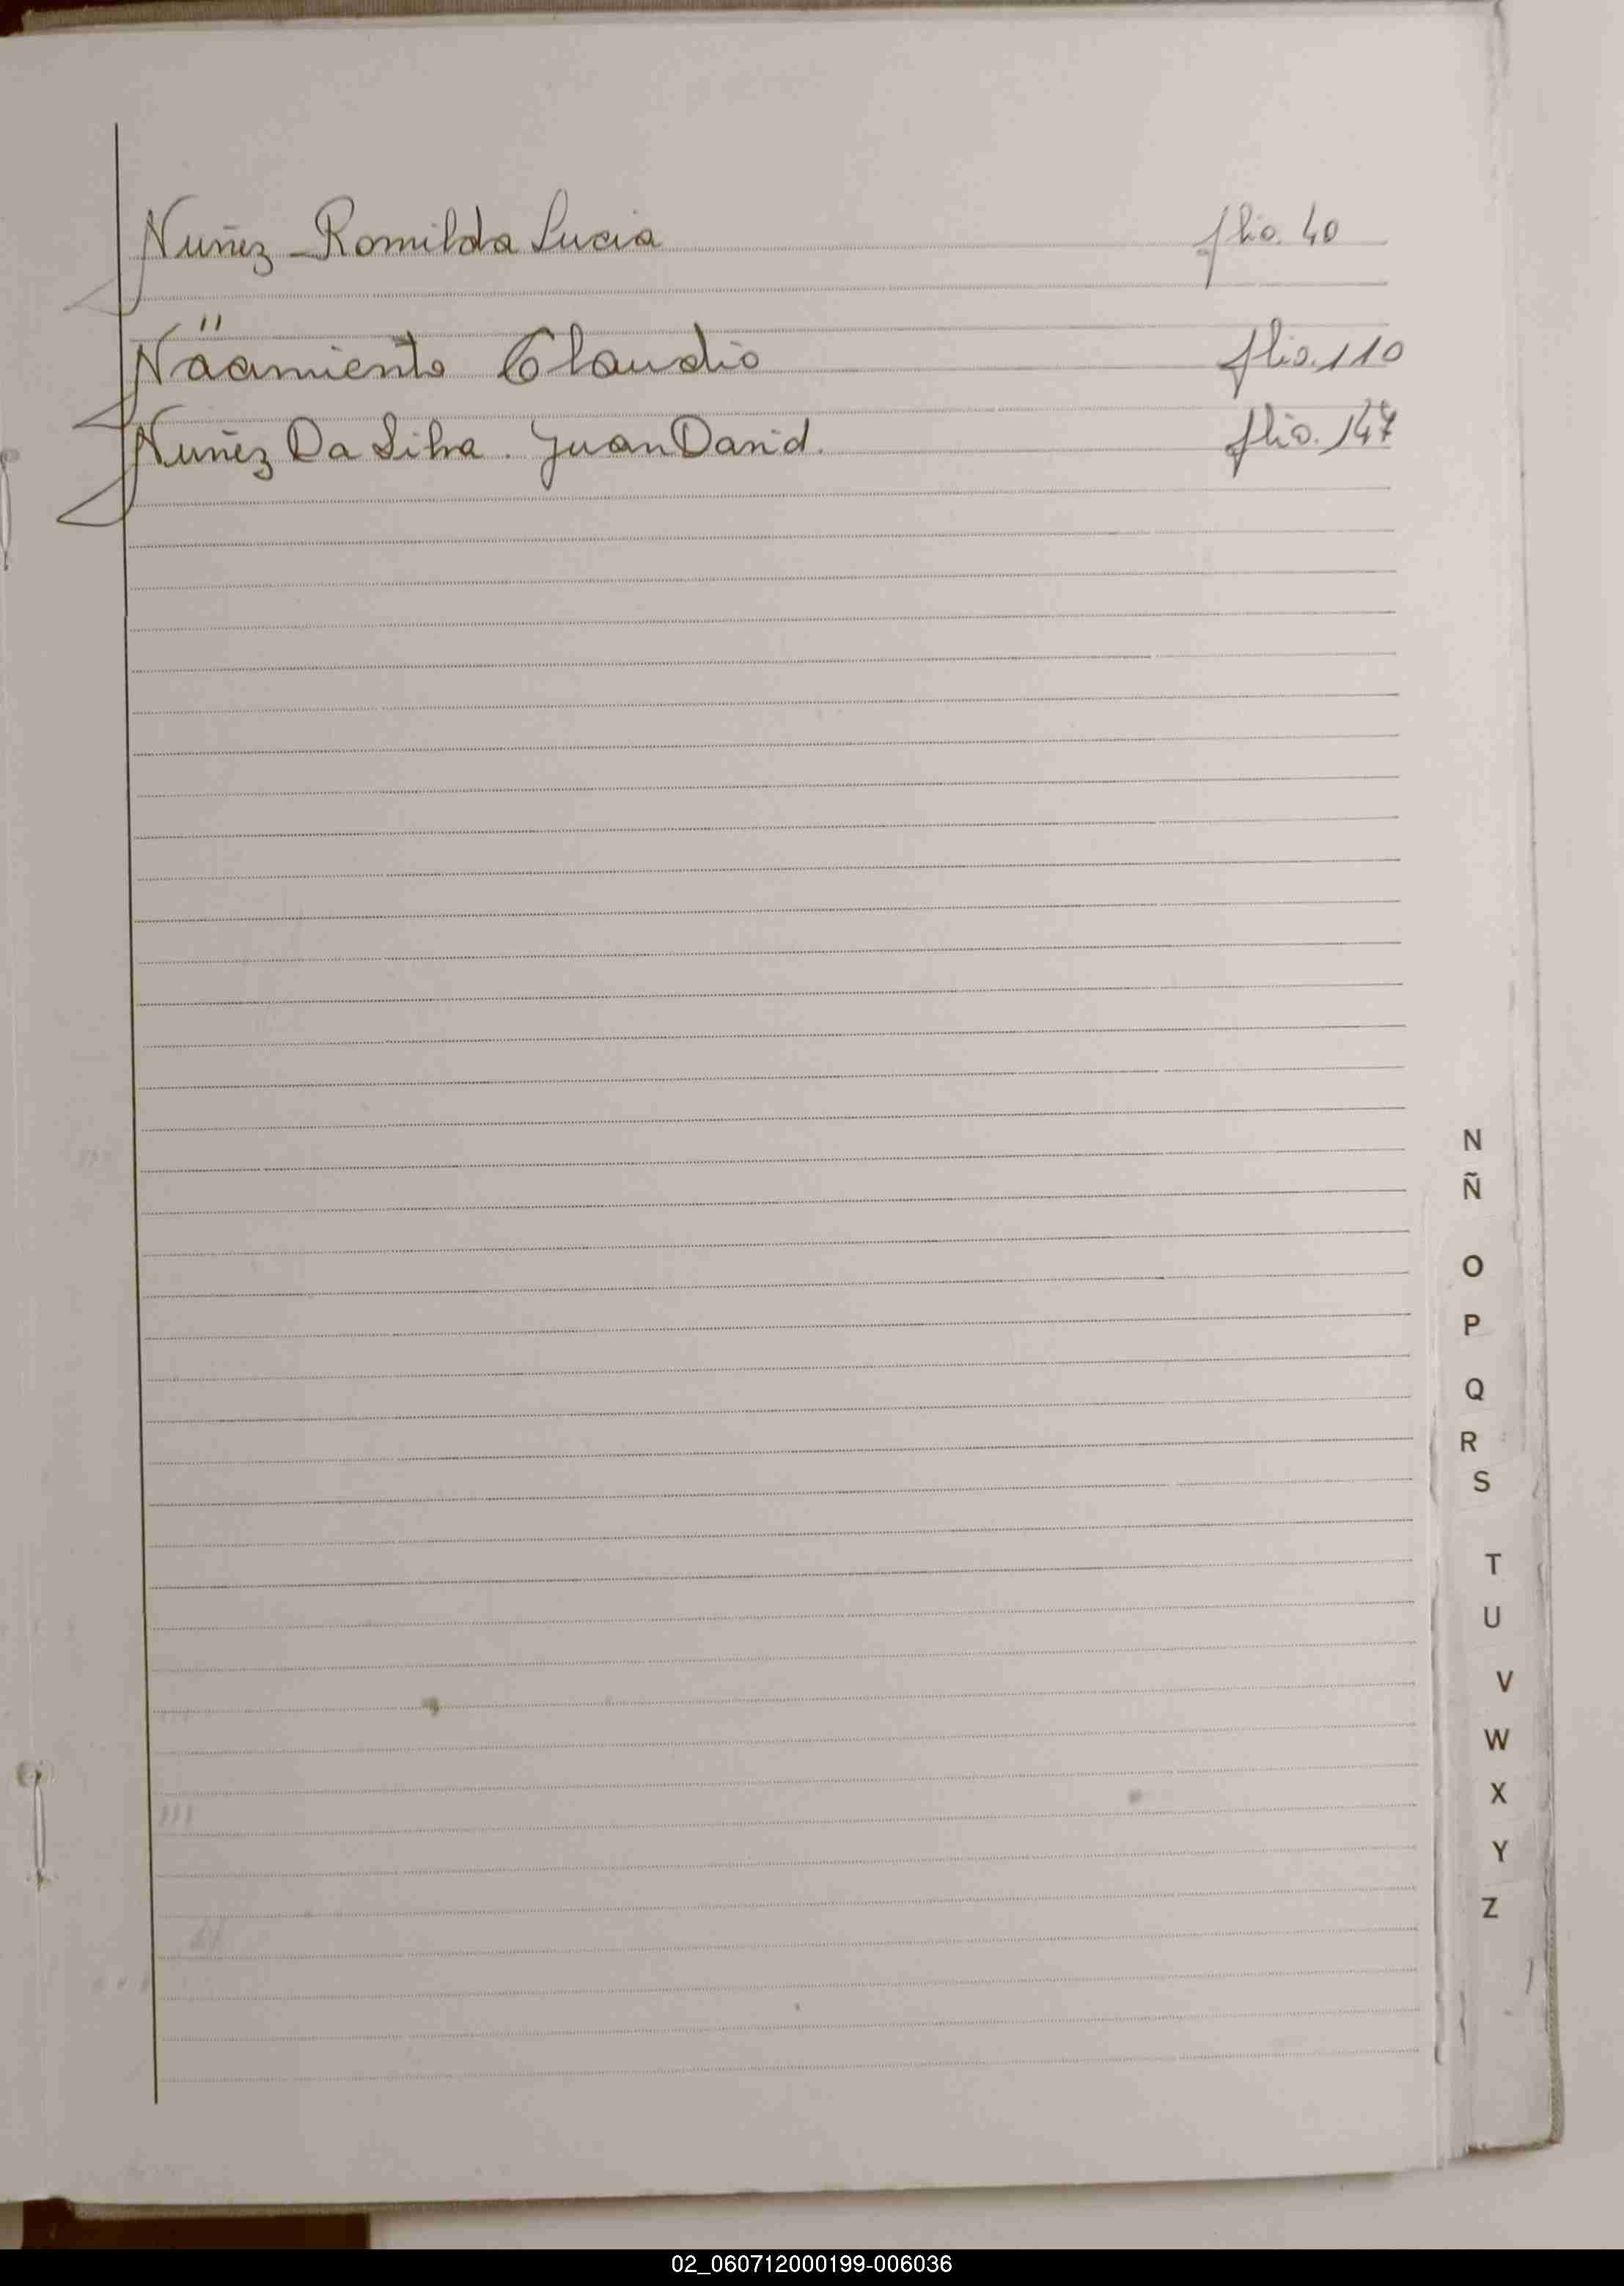 Nuñez Romilda Lucia flio. 40
Näamiento Claudio flio. 110
Nuñez Da Silva. Juan David. flio. 147
N
Ñ
O
P
Q
R
S
T
U
V
W
X
Y
Z
02_060712000199-006036